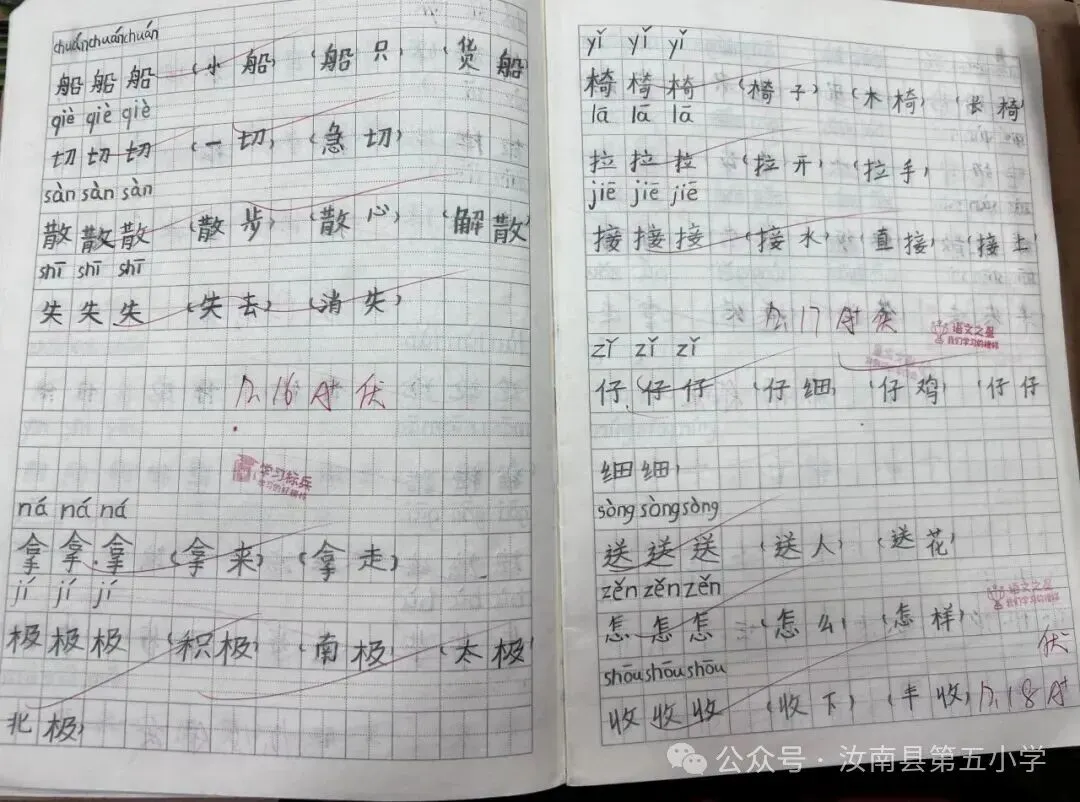 chuán chuán chuán
船 船 船 (小船) (船只) (货船)
qiè qiè qiè
切 切 切 (一切) (急切)
sàn sàn sàn
散 散 散 (散步) (散心) (解散)
shī shī shī
失 失 失 (失去) (消失)
12.16 A+ 优
学习标兵
ná ná ná
拿 拿 拿 (拿来) (拿走)
jí jí jí
极 极 极 (积极) (南极) (太极)
北极)
yǐ yǐ yǐ
椅 椅 椅 (椅子) (木椅) (长椅)
lā lā lā
拉 拉 拉 (拉开) (拉手)
jiē jiē jiē
接 接 接 (接水) (直接) (接上)
12.17 A+ 优
语文之星
我们学习的榜样
zǐ zǐ zǐ
仔 仔 仔 (仔细) (仔鸡) (仔仔
细细)
sòng sòng sòng
送 送 送 (送人) (送花)
zěn zěn zěn
怎 怎 怎 (怎么) (怎样)
语文之星
我们学习的榜样
优
shōu shōu shōu
收 收 收 (收下) (丰收) 12.18 A+
公众号 · 汝南县第五小学